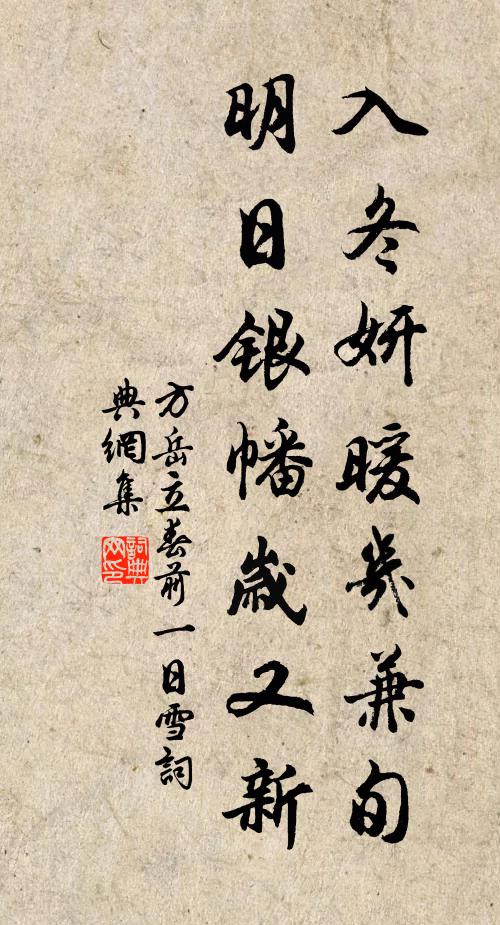 入冬妍暖幾兼旬
明日銀幡歲又新
方岳立春前一日雪詞
典網集
詞典
网印